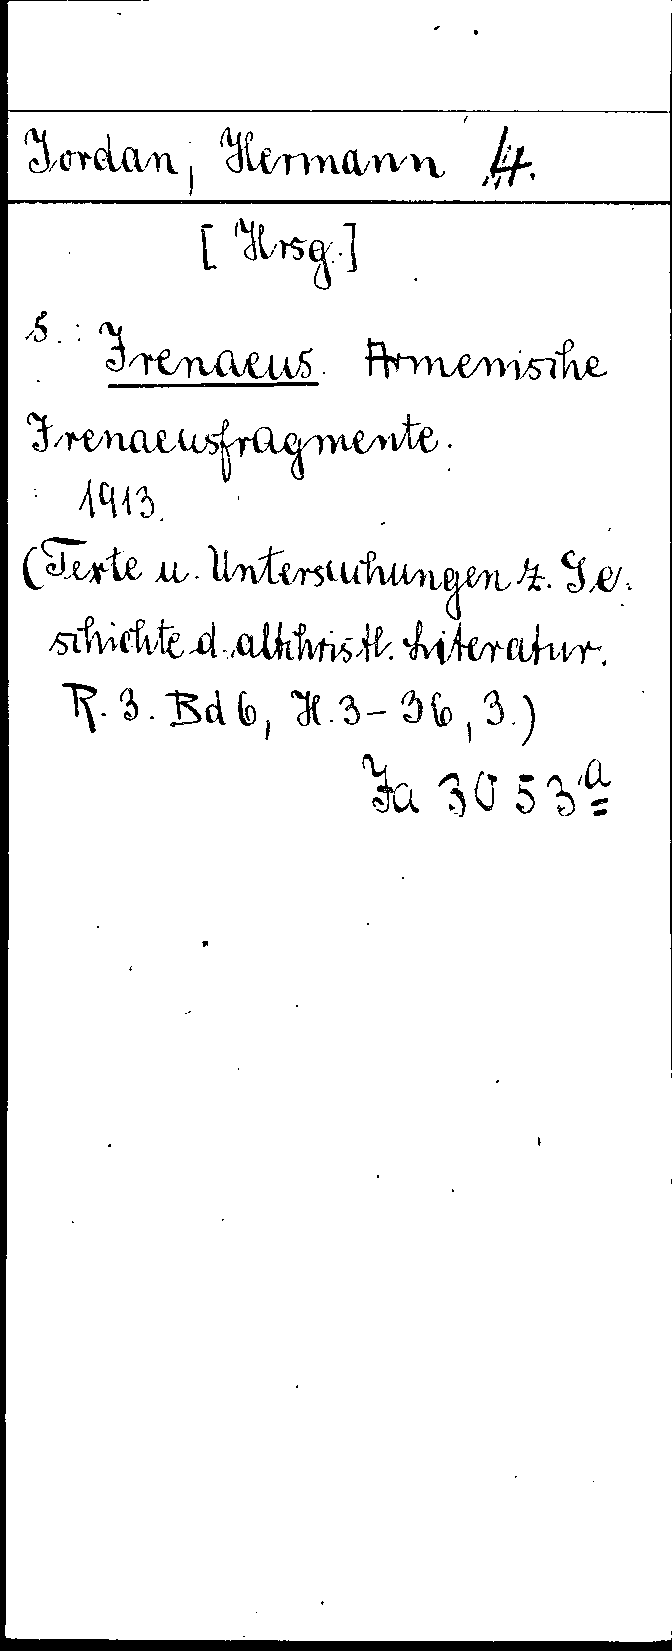 Jordan, Hermann 4.
[Hrsg.]
s.: Irenaeus. Armenische
Irenaeusfragmente.
1913.
(Texte u. Untersuchungen z. Ge-
schichte d. altchristl. Literatur.
R. 3. Bd 6, H. 3 - 36, 3.)
Ja 3053 a